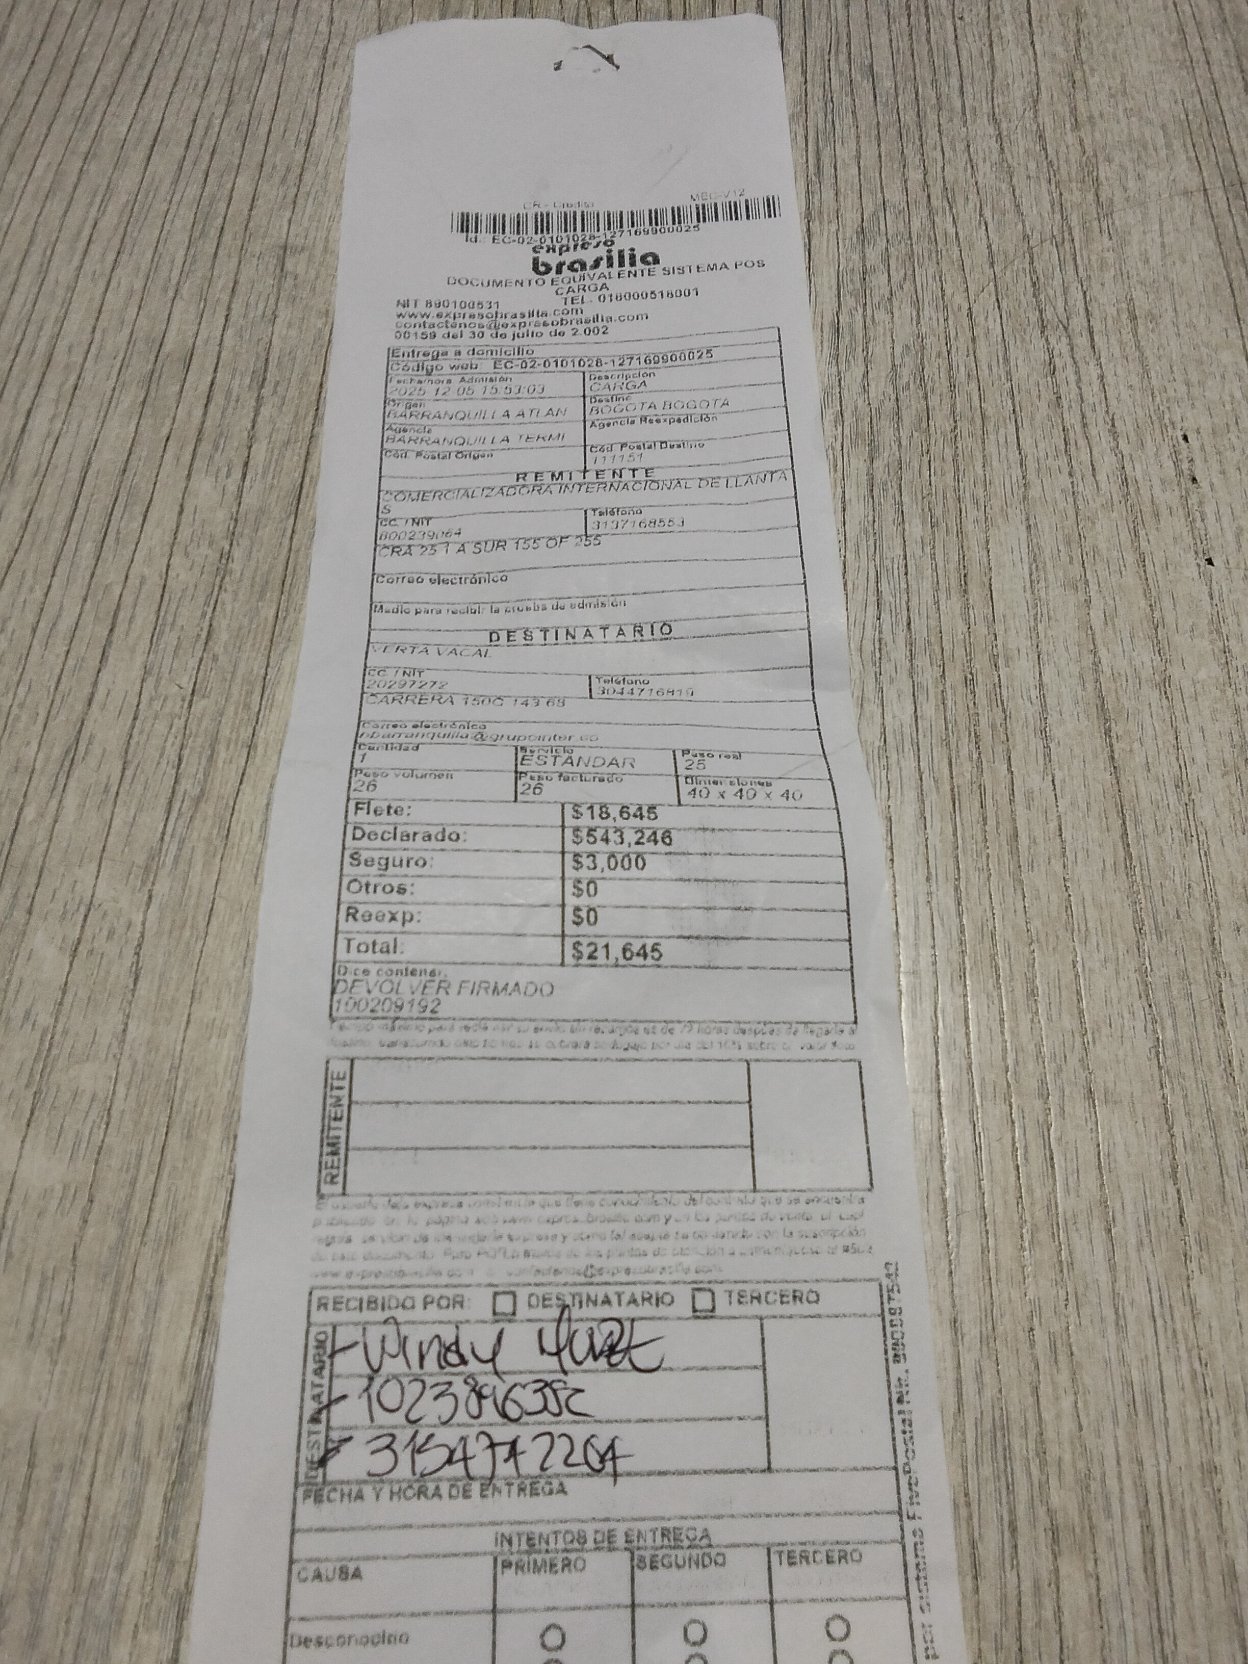 CR - Crédito MEC-V12
Id.: EC-02-0101028-127169900025
expreso
brasilia
DOCUMENTO EQUIVALENTE SISTEMA POS
CARGA
NIT 890100531 TEL. 018000518001
www.expresobrasilia.com
contactenos@expresobrasilia.com
00159 del 30 de julio de 2.002
Entrega a domicilio
Código web: EC-02-0101028-127169900025
Fecha/hora Admisión Descripción
2025-12-05 15:53:03 CARGA
Origen Destino
BARRANQUILLA ATLAN BOGOTA BOGOTA
Agencia Agencia Reexpedición
BARRANQUILLA TERMI
Cód. Postal Origen Cód. Postal Destino
111151
REMITENTE
COMERCIALIZADORA INTERNACIONAL DE LLANTA
S
CC. / NIT Teléfono
800239064 3137168553
CRA 25 1 A SUR 155 OF 255
Correo electrónico
Medio para recibir la prueba de admisión
DESTINATARIO
YERTA VACAL
CC. / NIT Teléfono
20297272 3044716819
CARRERA 150C 143 68
Correo electrónico
nbarranquilla@grupointer.co
Cantidad Servicio Peso real
1 ESTANDAR 25
Peso volumen Peso facturado Dimensiones
26 26 40 x 40 x 40
Flete: $18,645
Declarado: $543,246
Seguro: $3,000
Otros: $0
Reexp: $0
Total: $21,645
Dice contener:
DEVOLVER FIRMADO
100209192
REMITENTE
RECIBIDO POR: DESTINATARIO TERCERO
DESTINATARIO
Windy
1023896382
3154742264
FECHA Y HORA DE ENTREGA
INTENTOS DE ENTREGA
CAUSA PRIMERO SEGUNDO TERCERO
Desconocido
por sistema FivePostal